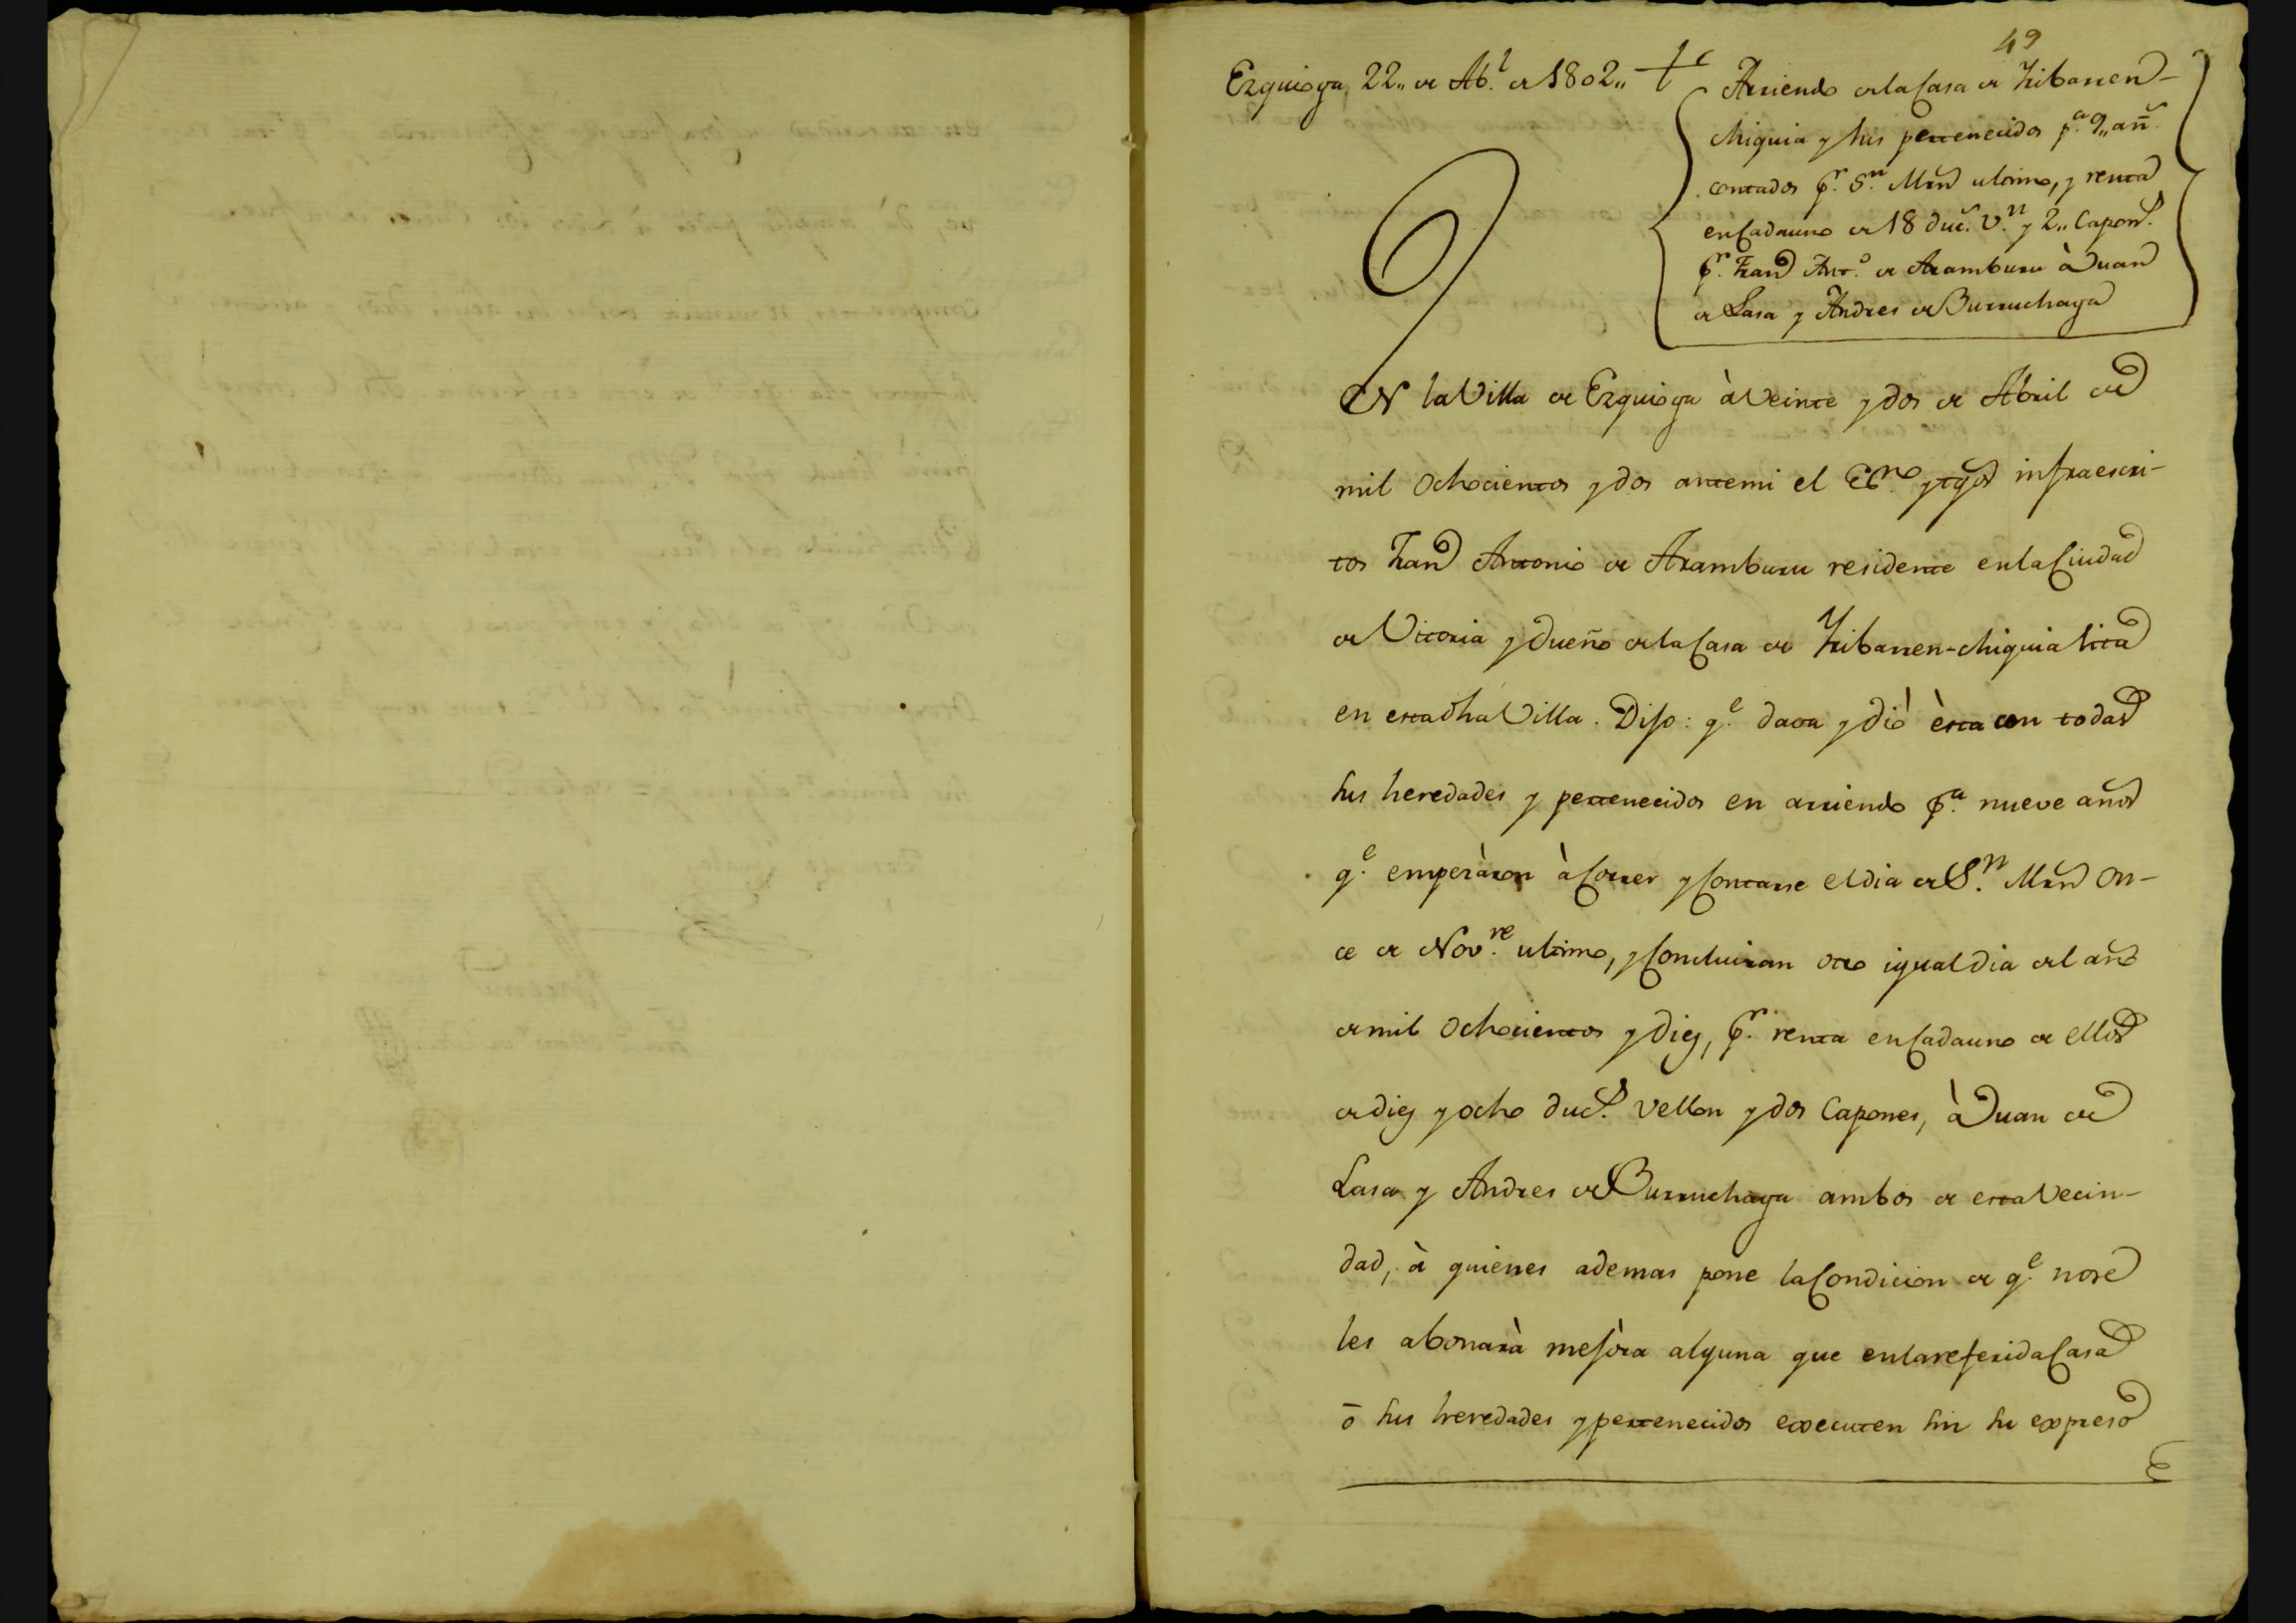 49
Ezquioga, 22,, de Ab.l de 1802,,
Arriendo de la Casa de Iribarren-
chiquia y sus pertenecidos p.a 9,, añ.s
contados p.r S.n Mrn ultimo, y renta
en Cadauno de 18 duc.s v.n y 2,, Capon.s
p.r Fran.co Ant.o de Aramburu à Juan
de Lasa y Andres de Burruchaga
EN la Villa de Ezquioga à Veinte y dos de Abril de
mil Ochocientos y dos antemi el Es.no y tgos infraescri-
tos Fran.co Antonio de Aramburu residente en la Ciudad
de Vitoria y dueño de la Casa de Iribarren-chiquia sita
en esta dha Villa. Dijo: q.e dava y diò èsta con todas
sus heredades y pertenecidos en arriendo p.a nueve años
q.e empezàron à Correr y Contarse el dia de S.n Mrn On-
ce de Nov.re ultimo, y Concluiran otro igual dia del año
de mil Ochocientos y diez, p.r renta en Cadauno de ellos
de diez y ocho duc.s vellon y dos Capones, à Juan de
Lasa y Andres de Burruchaga ambos de esta Vecin-
dad, à quienes ademas pone la Condicion de q.e nose
les abonarà mejòra alguna que en la referida Casa
ō sus heredades y pertenecidos executen sin su expreso